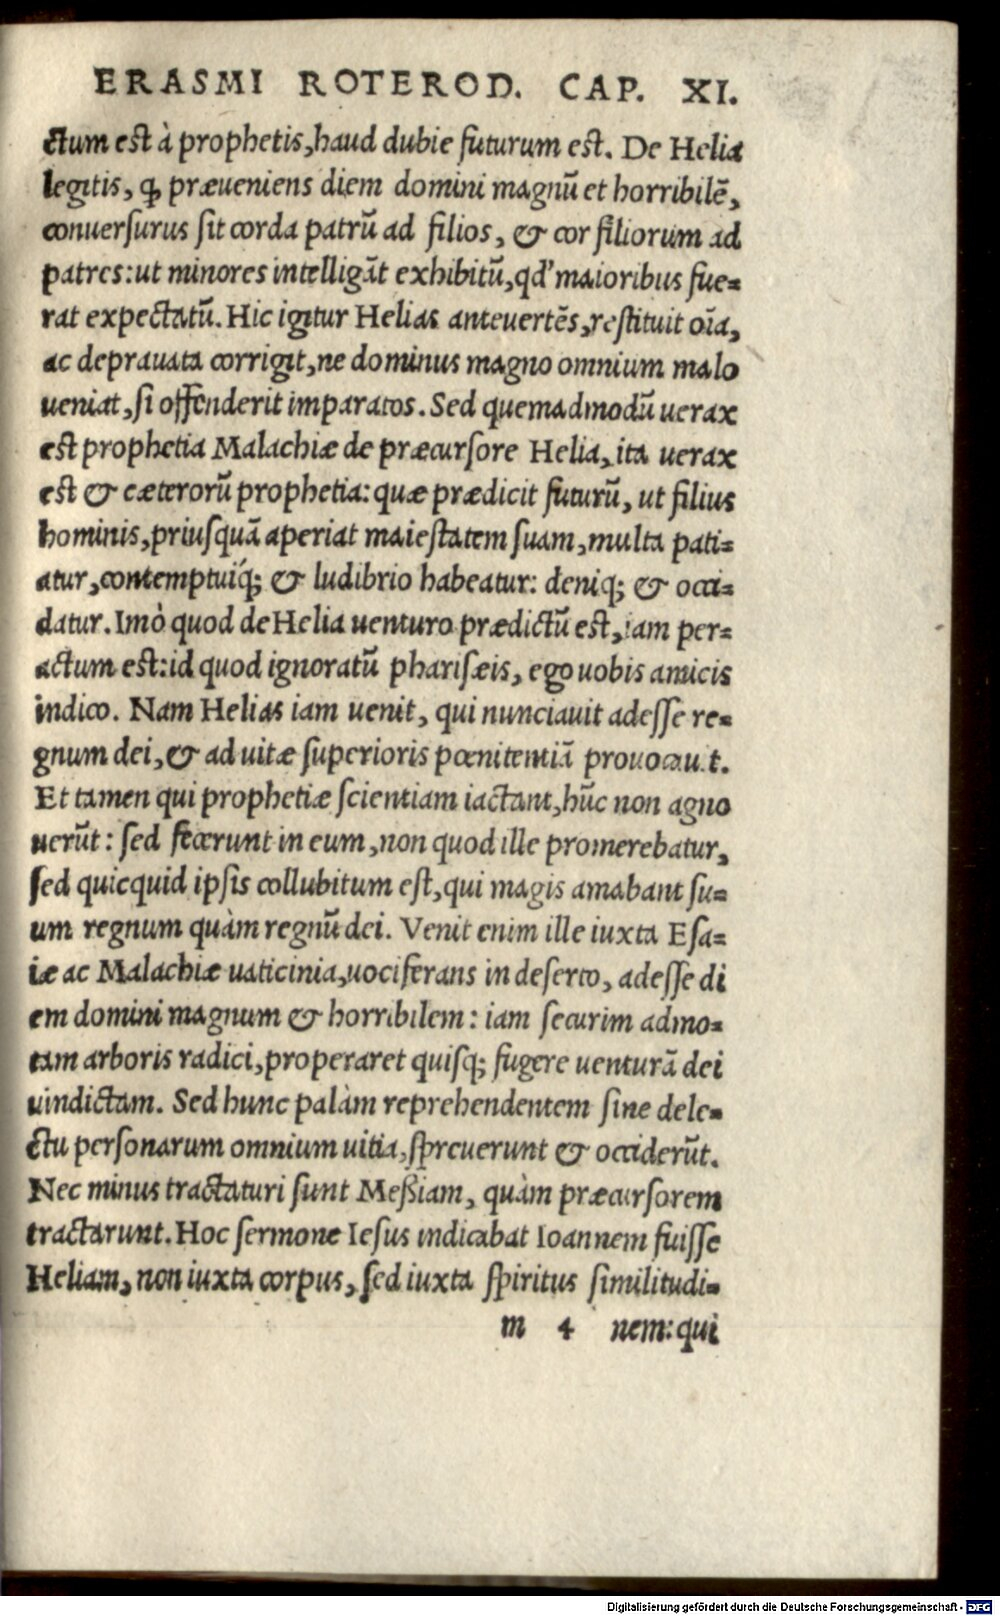 ERASMI ROTEROD. CAP. XI.
ctum est à prophetis, haud dubie futurum est. De Helia
legitis, ꝙ præueniens diem domini magnū et horribilē,
conuersurus sit corda patrū ad filios, & cor filiorum ad
patres: ut minores intelligāt exhibitū, qd' maioribus fue=
rat expectatū. Hic igitur Helias anteuertēs, restituit oīa,
ac deprauata corrigit, ne dominus magno omnium malo
ueniat, si offenderit imparatos. Sed quemadmodū uerax
est prophetia Malachiæ de præcursore Helia, ita uerax
est & cæterorū prophetia: quæ prædicit futurū, ut filius
hominis, priusquā aperiat maiestatem suam, multa pati=
atur, contemptuiq́; & ludibrio habeatur: deniq; & occi=
datur. Imò quod de Helia uenturo prædictū est, iam per=
actum est: id quod ignoratū pharisæis, ego uobis amicis
indico. Nam Helias iam uenit, qui nunciauit adesse re=
gnum dei, & ad uitæ superioris pœnitentiā prouocauit.
Et tamen qui prophetiæ scientiam iactant, hūc non agno
uerūt: sed fecerunt in eum, non quod ille promerebatur,
sed quicquid ipsis collubitum est, qui magis amabant su=
um regnum quàm regnū dei. Venit enim ille iuxta Esa=
iæ ac Malachiæ uaticinia, uociferans in deserto, adesse di
em domini magnum & horribilem: iam securim admo=
tam arboris radici, properaret quisq; fugere uenturā dei
uindictam. Sed hunc palàm reprehendentem sine dele=
ctu personarum omnium uitia, spreuerunt & occiderūt.
Nec minus tractaturi sunt Meßiam, quàm præcursorem
tractarunt. Hoc sermone Iesus indicabat Ioannem fuisse
Heliam, non iuxta corpus, sed iuxta spiritus similitudi=
m 4 nem: qui
Digitalisierung gefördert durch die Deutsche Forschungsgemeinschaft - DFG